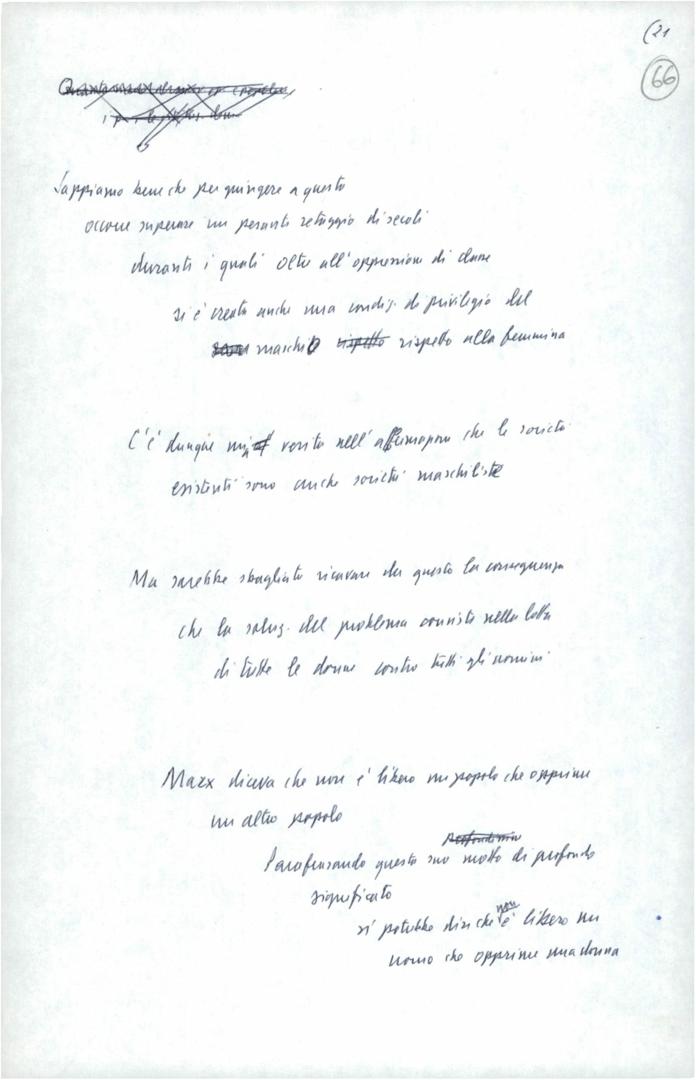 (21
66
Sappiamo bene che per giungere a questo
occorre superare un pesante retaggio di secoli
durante i quali oltre all'oppressione di classe
si è creata anche una condiz. di privilegio del
maschio rispetto rispetto alla femmina
C'è dunque verità nell'affermazione che le società
esistenti sono anche società maschiliste
Ma sarebbe sbagliato ricavare da questo la conseguenza
che la soluz. del problema consista nella lotta
di tutte le donne contro tutti gli uomini
Marx diceva che non è libero un popolo che opprime
un altro popolo
Parafrasando questo suo motto di profondo
significato
si potrebbe dire che non è libero un
uomo che opprime una donna